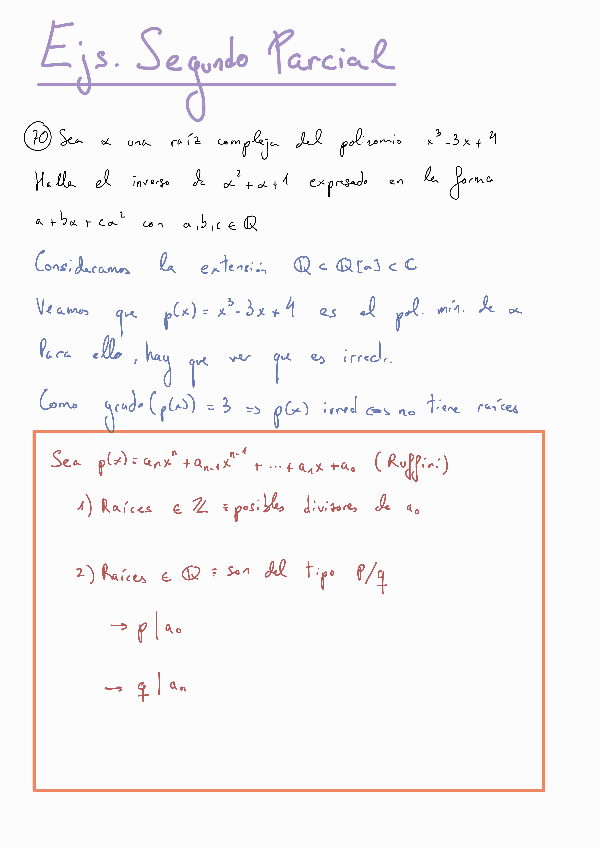 Ejs. Segundo Parcial
70 Sea α una raíz compleja del polinomio x³-3x+4
Halla el inverso de α²+α+1 expresado en la forma
a+bα+cα² con a,b,c ∈ ℚ
Consideramos la extensión ℚ ⊂ ℚ[α] ⊂ ℂ
Veamos que p(x) = x³-3x+4 es el pol. mín. de α
Para ello, hay que ver que es irredc.
Como grado(p(x)) = 3 => p(x) irred <=> no tiene raíces
Sea p(x) = aₙxⁿ + aₙ₋₁xⁿ⁻¹ + ... + a₁x + a₀ (Ruffini)
1) Raíces ∈ ℤ ≡ posibles divisores de a₀
2) Raíces ∈ ℚ ≡ son del tipo P/q
→ p | a₀
→ q | aₙ